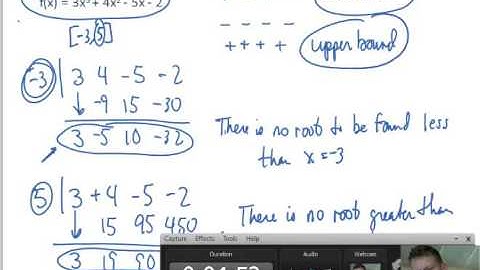 f(x) = 3x³ + 4x² - 5x - 2
[-3,5]
- - - -
+ + + + upper bound
-3 | 3 4 -5 -2
↓ -9 15 -30
3 -5 10 -32
There is no root to be found less
than x = -3
5 | 3 +4 -5 -2
↓ 15 95 450
3 19 90
There is no root greater than
Capture Effects Tools Help
Duration Audio Webcam